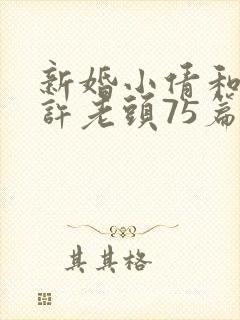 新婚小倩和
許老頭75篇
其其格